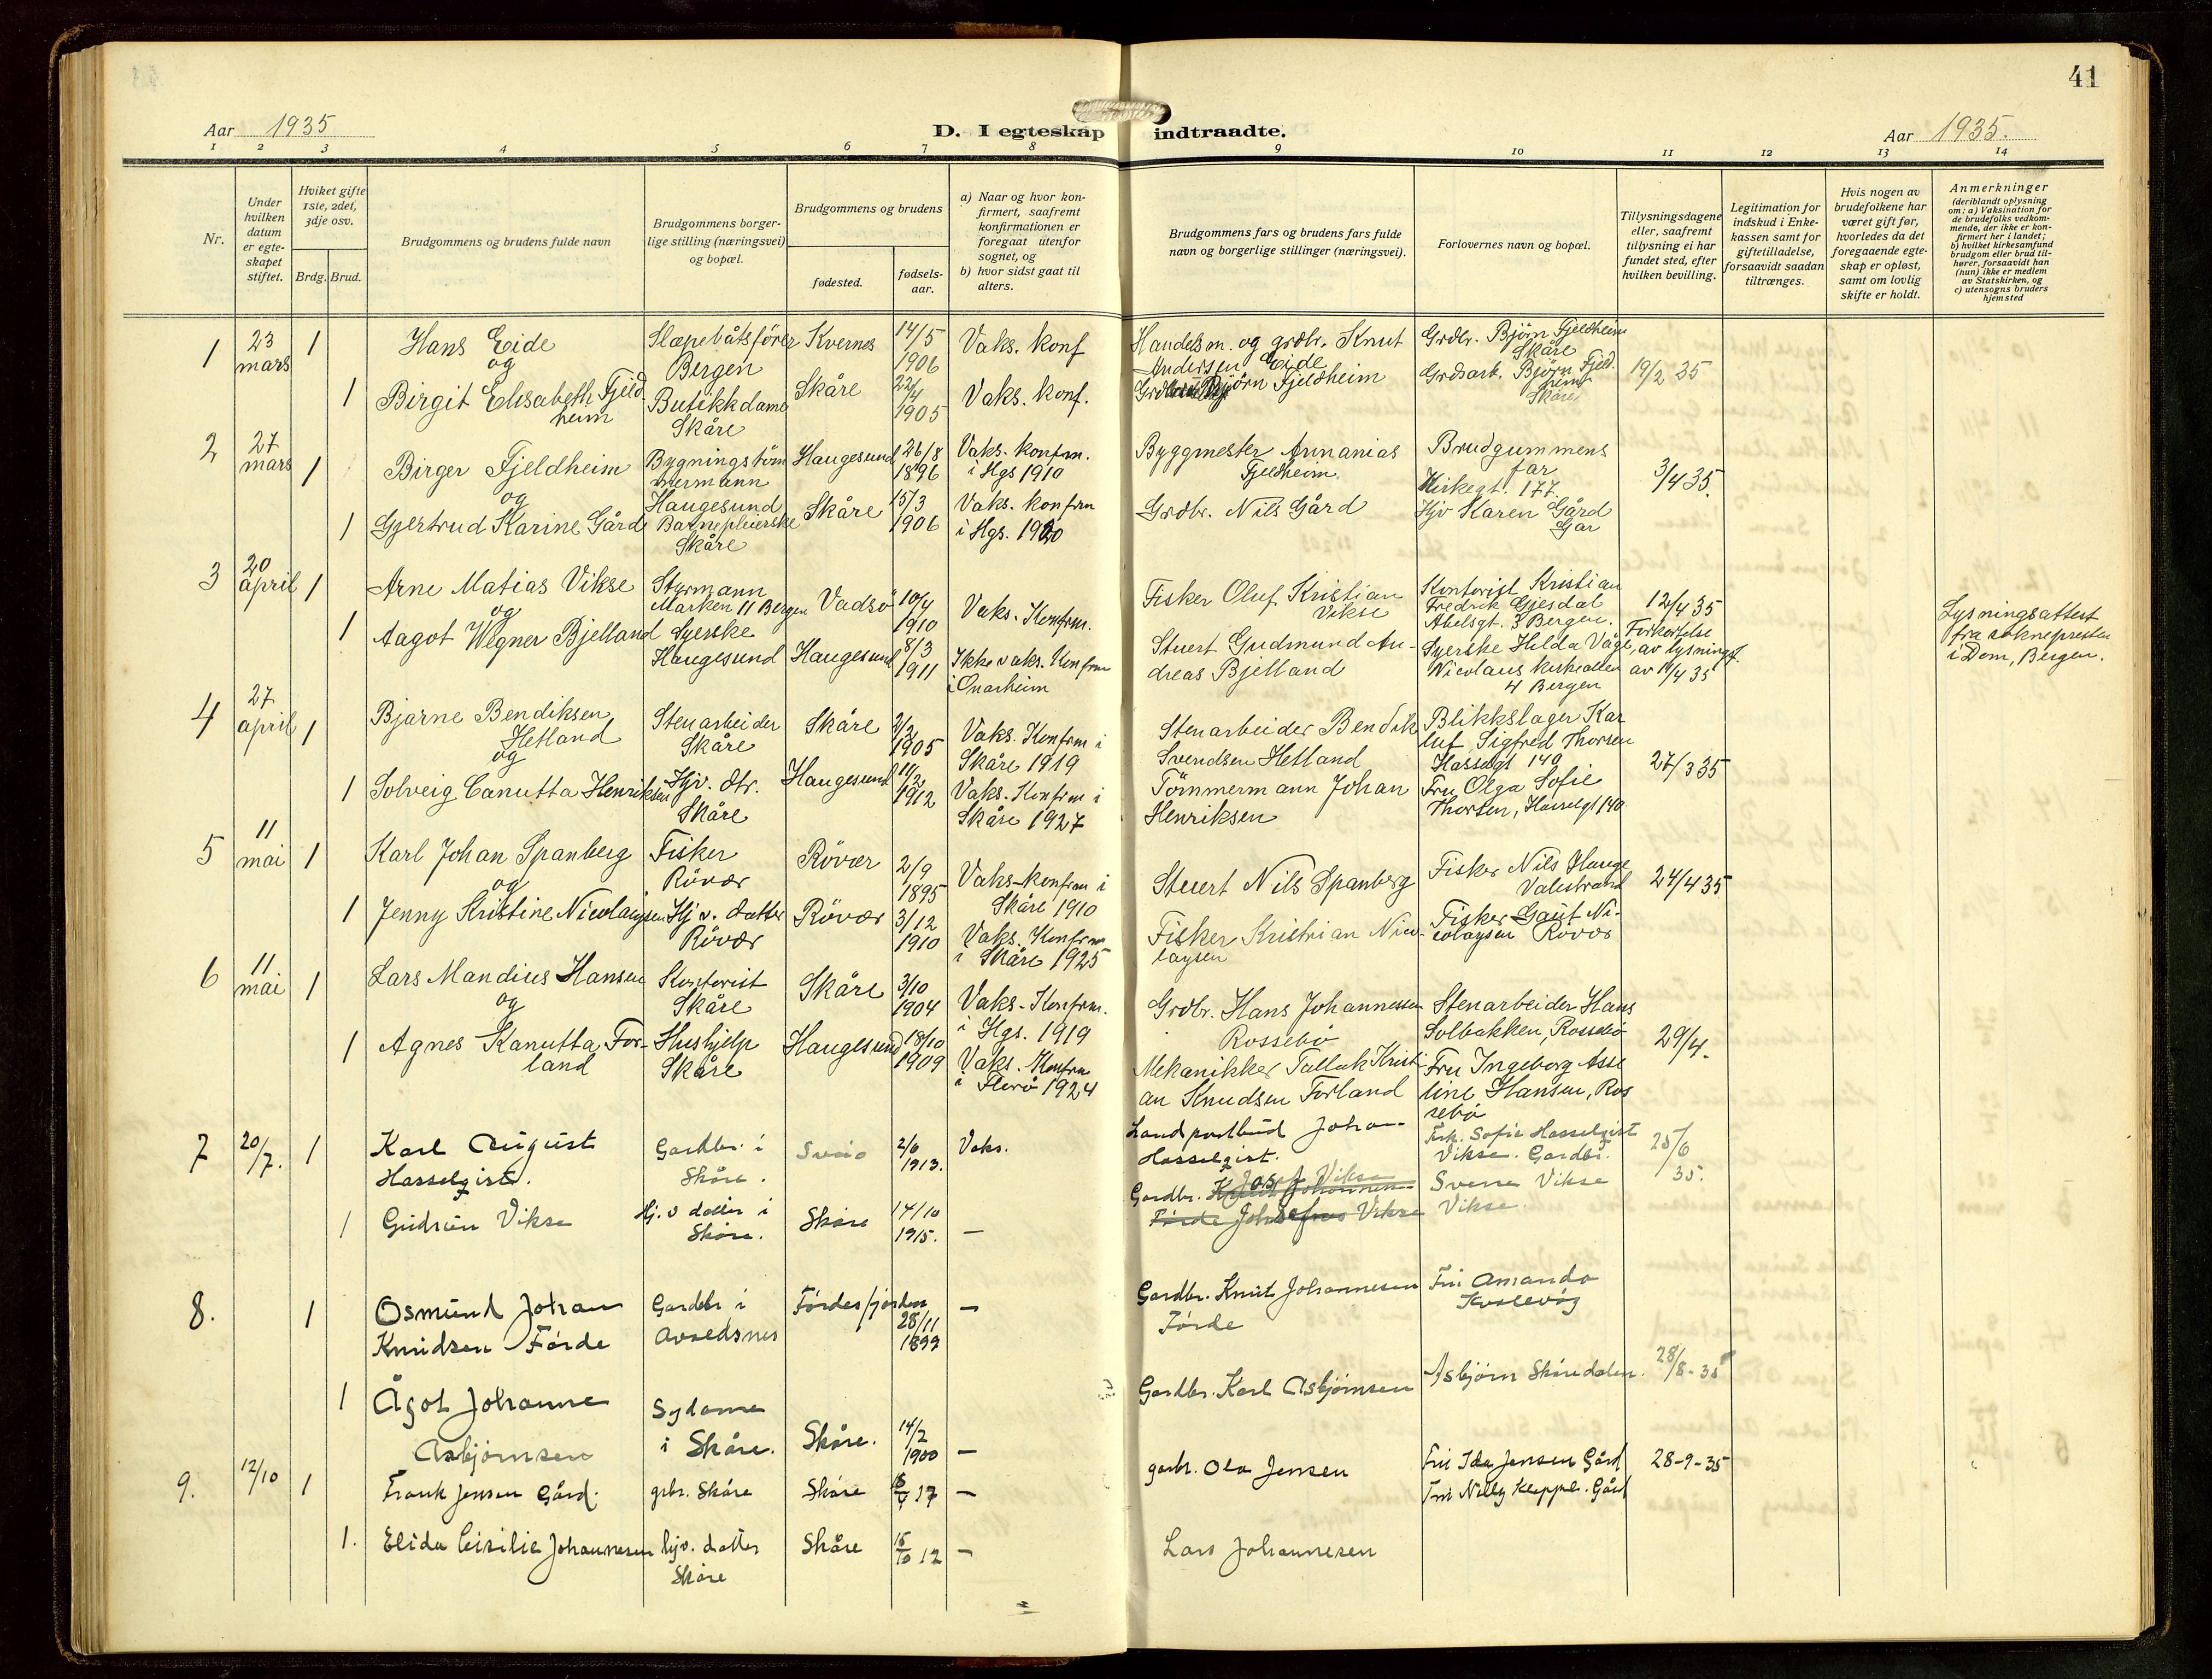 41
Aar 1935
D. I egteskap indtraadte.
Aar 1935.
1 2 3 4 5 6 7 8 9 10 11 12 13 14
Nr.
Under
hvilken
datum
er egte-
skapet
stiftet.
Hviket gifte
1ste, 2det,
3dje osv.
Brdg. Brud.
Brudgommens og brudens fulde navn
Brudgommens borger-
lige stilling (næringsvei)
og bopæl.
Brudgommens og brudens
fødested.
fødsels-
aar.
a) Naar og hvor kon-
firmert, saafremt
konfirmationen er
foregaat utenfor
sognet, og
b) hvor sidst gaat til
alters.
Brudgommens fars og brudens fars fulde
navn og borgerlige stillinger (næringsvei).
Forlovernes navn og bopæl.
Tillysningsdagene
eller, saafremt
tillysning ei har
fundet sted, efter
hvilken bevilling.
Legitimation for
indskud i Enke-
kassen samt for
giftetilladelse,
forsaavidt saadan
tiltrænges.
Hvis nogen av
brudefolkene har
været gift før,
hvorledes da det
foregaaende egte-
skap er opløst,
samt om lovlig
skifte er holdt.
Anmerkninger
(deriblandt oplysning
om: a) Vaksination for
de brudefolks vedkom-
mende, der ikke er kon-
firmert her i landet;
b) hvilket kirkesamfund
brudgom eller brud til-
hører, forsaavidt han
(hun) ikke er medlem
av Statskirken, og
c) utensogns bruders
hjemsted
1
23
mars
1
Hans Eide
og
Slæpebåtsfører
Bergen
Kvernes
14/5
1906
Vaks. konf
Handelsm. og grdbr. Knut
Andersen Eide
Grdbr. Bjørn Fjeldheim
Skåre
1
Birgit Elisabeth Fjeld
heim
Butikkdame
Skåre
Skåre
22/4
1905
Vaks. konf.
Bjørn Fjeldheim
Grdsarb. Bjørn Fjeld.
heim
Skåre
19/2 35
2
27
mars
1
Birger Fjeldheim
og
Bygningstöm
mermann
Haugesund
Haugesund
26/8
1896
Vaks. konfrm.
i Hgs 1910
Byggmester Annanias
Fjeldheim.
Brudgummens
far
Kirkegt. 177
3/4 35.
1
Gjertrud Karine Gård
Barnepleierske
Skåre
Skåre
15/3
1906
Vaks. konfrm
i Hgs. 1920
Grdbr. Nils Gård
Hjv Karen Gård
Gar
3
20
april
1
Arne Matias Vikse
og
Styrmann
Marken 11 Bergen
Vadsø
10/4
1910
Vaks. Konfrm.
Fisker Oluf Kristian
Vikse
Kontorist Kristian
Fredrik Gjesdal
Abelsgt. 3 Bergen.
12/4 35
Forkortelse
av lysningsf.
av 11/4 35
Lysningsattest
fra soknepresten
i Dom, Bergen.
1
Aagot Wegner Bjelland
Syerske
Haugesund
Haugesund
8/3
1911
Ikke vaks. Konfrm
i Onarheim
Stuert Gudmund An-
dreas Bjelland
Syerske Hilda Våge,
Nicolaus kirkealln
4 Bergen
4
27
april
1
Bjarne Bendiksen
Hetland
og
Stenarbeider
Skåre
Skåre
2/2
1905
Vaks. Konfrm i
Skåre 1919
Stenarbeider Bendik
Svendsen Hetland
Blikkslager Kar
luf Sigfred Thorsen
Hasselgt 140
27/3 35
1
Solveig Canutta Henriksen
Hjv. dtr.
Skåre
Haugesund
11/2
1912
Vaks. Konfrm i
Skåre 1927
Tömmermann Johan
Henriksen
Fru Olga Sofie
Thorsen, Hasselgt 140
5
11
mai
1
Karl Johan Spanberg
og
Fisker
Rövær
Rövær
2/9
1895
Vaks-konfrm i
Skåre 1910
Stuert Nils Spanberg
Fisker Nils Hauge
Valestrand
24/4 35
1
Jenny Kristine Nicolaysen
Hjv. datter
Rövær
Rövær
3/12
1910
Vaks. Konfrm
i Skåre 1925
Fisker Kristian Nico-
laysen
Fisker Gaut Ni-
colaysen Rövær
6
11
mai
1
Lars Mandius Hansen
og
Kontorist
Skåre
Skåre
3/10
1904
Vaks. Konfrm.
i Hgs. 1919
Grdbr. Hans Johannessen
Rossebø
Stenarbeider Hans
Solbakken, Rossebø
29/4.
1
Agnes Kanutta For-
land
Hushjelp
Skåre
Haugesund
18/10
1909
Vaks. Konfrm
i Florö 1924
Mekanikker Tallak Kristi
an Knudsen Forland
Fru Ingeborg Asse
line Hansen, Ros
sebø
7
20/7.
1
Karl August
Hasselqist.
Gardbr. i
Skåre.
Sveio
2/6
1913.
Vaks.
Landpostbud Johan
Hasselqist.
Frk. Sofie Hasselqist
Vikse. Gardbr.
25/6
35.
1
Gudrun Vikse
Hj.v datter i
Skåre.
Skåre
14/10
1915.
—
Gardbr. Josef Vikse
Sverre Vikse
Vikse.
8.
1
Osmund Johan
Knudsen Førde
Gardbr i
Avaldsnes
Førdesfjorden
28/11
1899
—
Gardbr. Knut Johannesen
Førde
Fru Amanda
Kvalevåg
1
Ågot Johanne
Asbjørnsen
Sydame
i Skåre.
Skåre.
14/2
1900
—
Gardbr. Karl Asbjørnsen
Asbjørn Skåredalen.
28/8-35
9.
12/10
1
Frank Jensen Gård.
grbr. Skåre
Skåre
—
garbr. Ola Jensen
Fru Ida Jensen Gård
Fru Nelly Kleppe. Gård
28-9-35
1.
Elida Cisilie Johannesen
hjv. datter
Skåre
Skåre
15/10 12
—
Lars Johannesen